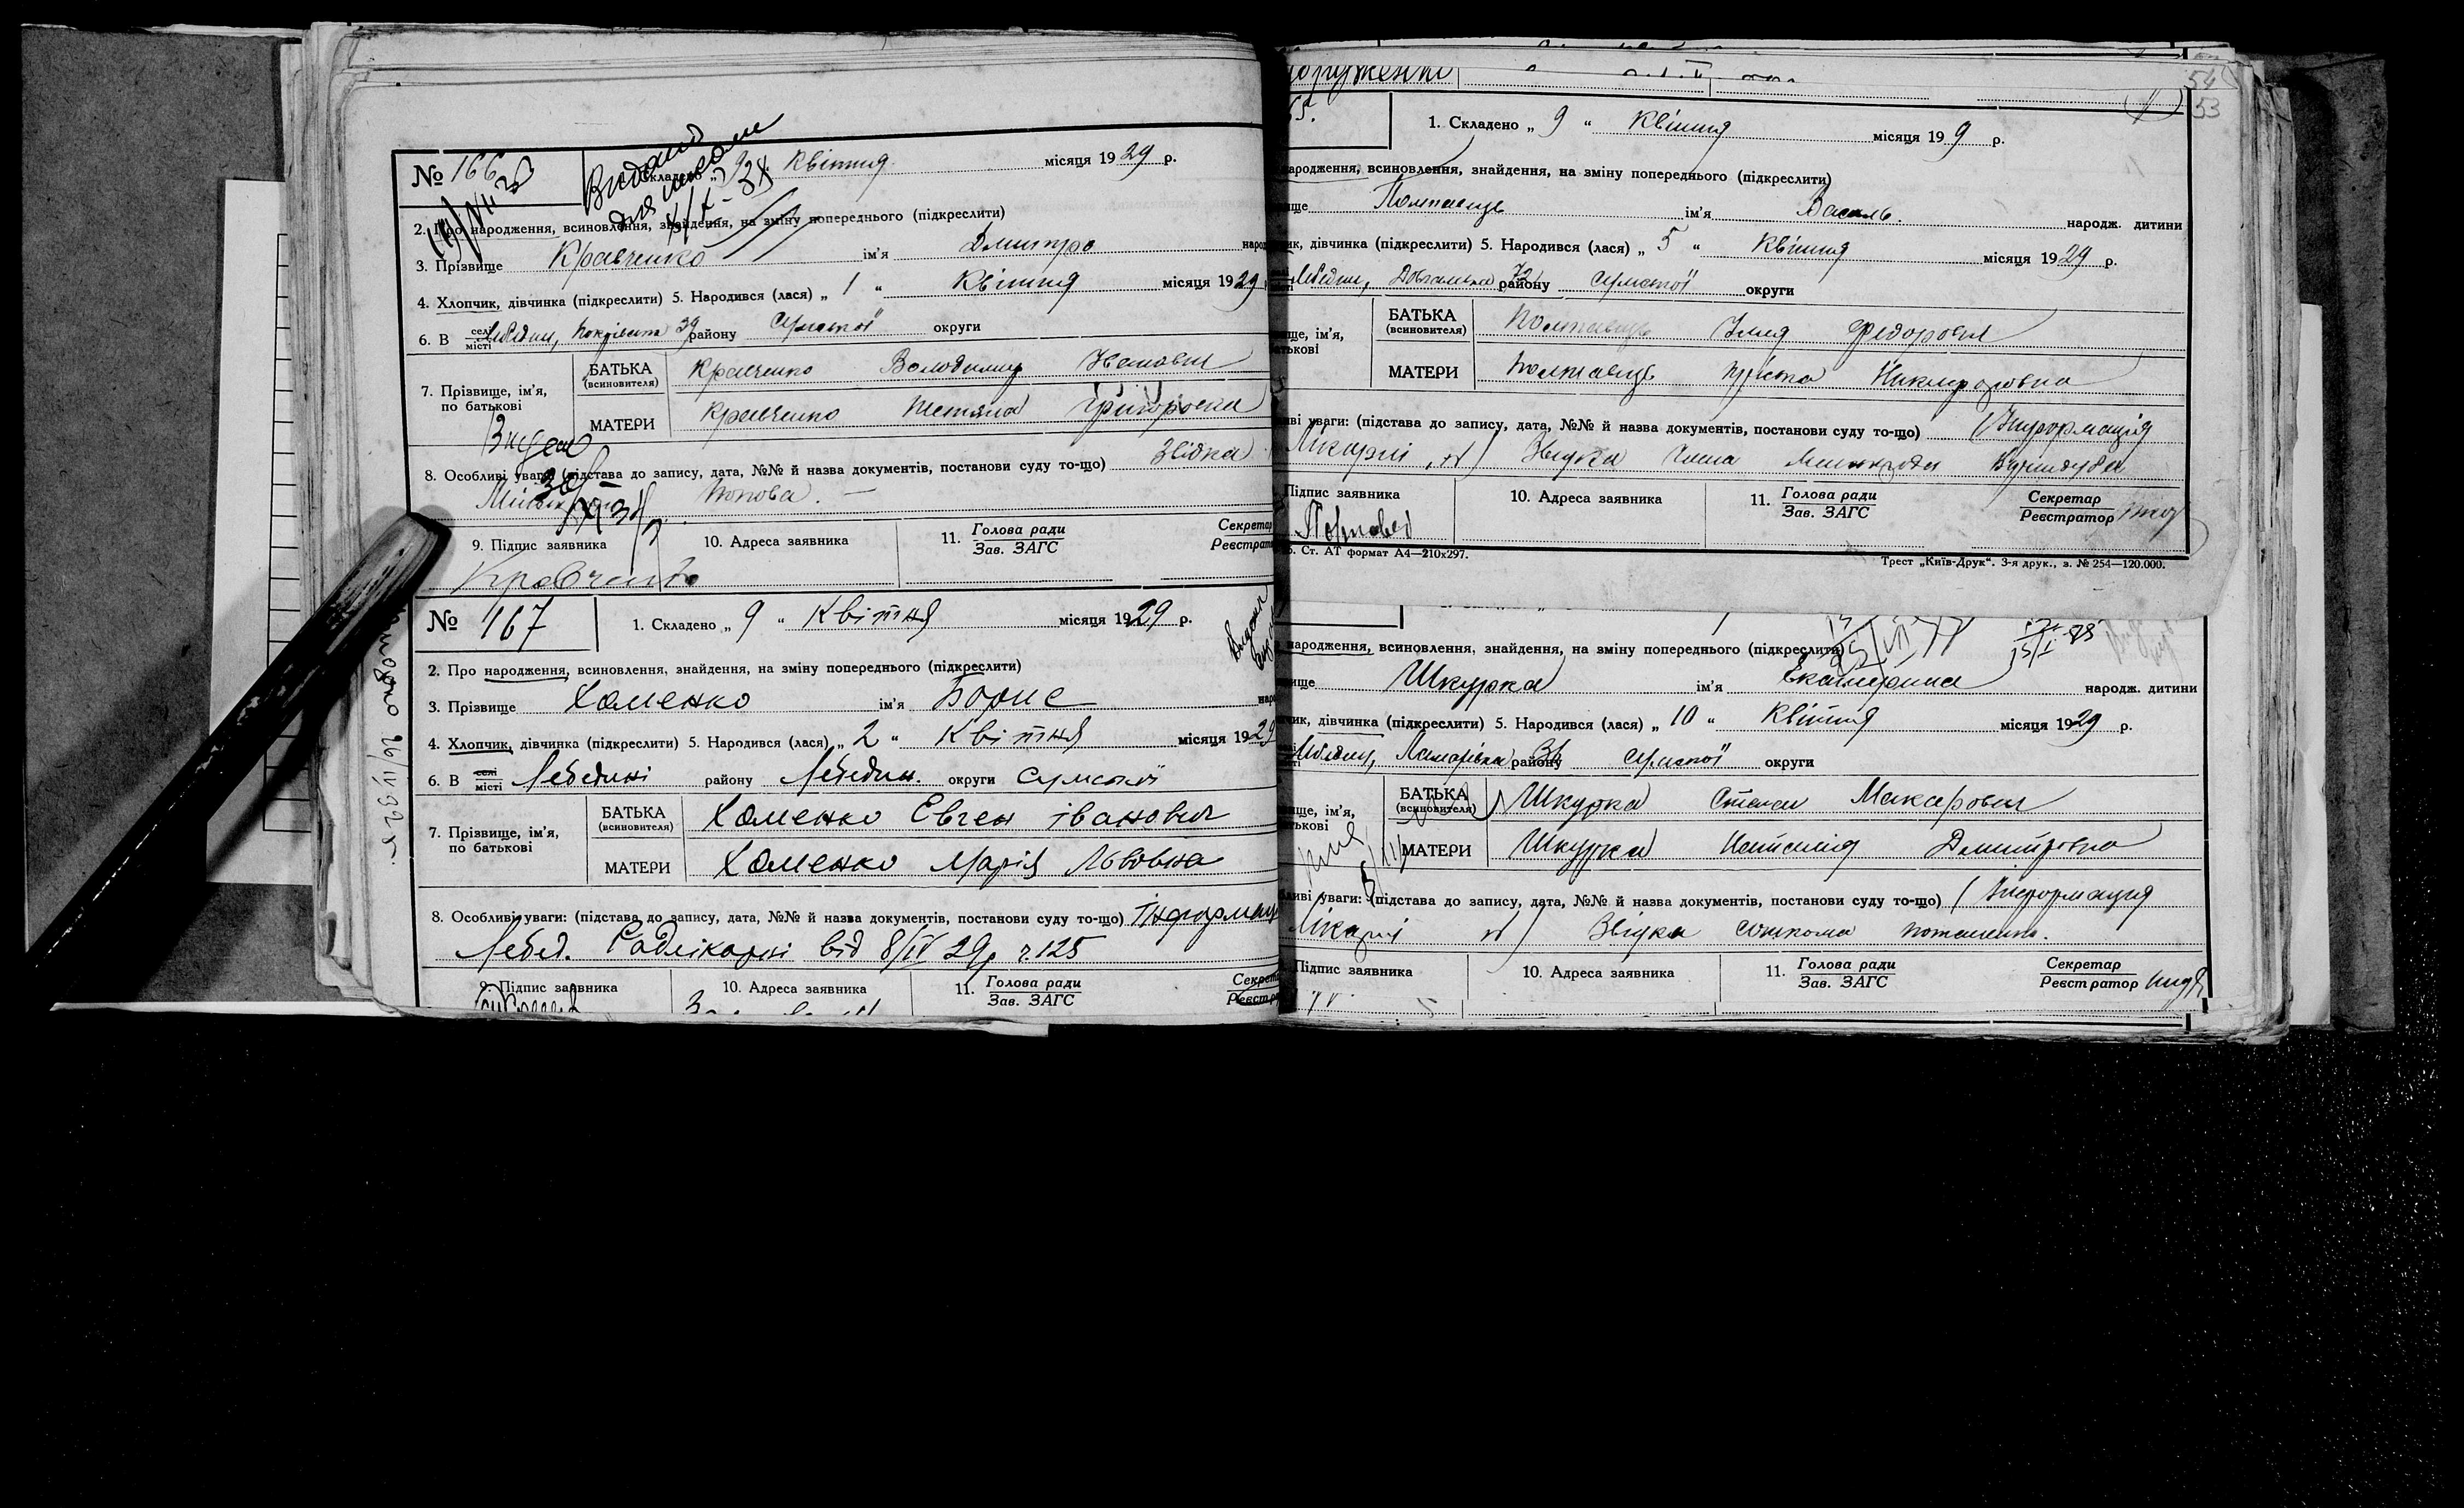 № 166
Видано
для школи
Складено „ 9 “ Квітня місяця 1929 р.
2. Про народження, всиновлення, знайдення, на зміну попереднього (підкреслити)
3. Прізвище Кравченко ім’я Дмитро народ
4. Хлопчик, дівчинка (підкреслити) 5. Народився (лася) „ 1 “ Квітня місяця 1929
6. В селі місті Лебедин, району Сумської округи
7. Прізвище, ім’я, по батькові
БАТЬКА (всиновителя) Кравченко Володимир Іванович
МАТЕРИ Кравченко Тетяна Григоровна
8. Особливі уваги (підстава до запису, дата, №№ й назва документів, постанови суду то-що) Звідка
Попова.
9. Підпис заявника 10. Адреса заявника 11. Голова ради Зав. ЗАГС Секретар Реєстрат
Кравченко
№ 167
1. Складено „ 9 “ Квітня місяця 1929 р.
2. Про народження, всиновлення, знайдення, на зміну попереднього (підкреслити)
3. Прізвище Хоменко ім’я Борис наро
4. Хлопчик, дівчинка (підкреслити) 5. Народився (лася) „ 2 “ Квітня місяця 1929
6. В селі місті Лебедині району Лебедин. округи Сумської
7. Прізвище, ім’я, по батькові
БАТЬКА (всиновителя) Хоменко Евген Іванович
МАТЕРИ Хоменко Марія Львовна
8. Особливі уваги: (підстава до запису, дата, №№ й назва документів, постанови суду то-що) Інформац
Лебед. Радлікарні від 8/IV 29р ч.125
9. Підпис заявника 10. Адреса заявника 11. Голова ради Зав. ЗАГС Секрет Реєстр
54
53
65.
1. Складено „ 9 “ Квітня місяця 19 9 р.
ародження, всиновлення, знайдення, на зміну попереднього (підкреслити)
ище Полтавець ім’я Василь. народж. дитини
ик, дівчинка (підкреслити) 5. Народився (лася) „ 5 “ Квітня місяця 1929 р.
Лебедин, 72 району Сумської округи
ище, ім’я, атькові
БАТЬКА (всиновителя) Полтавець Ілля Федорович
МАТЕРИ Полтавець Никифоровна
иві уваги: (підстава до запису, дата, №№ й назва документів, постанови суду то-що) (Інформація
Лікарні Звідка
Підпис заявника 10. Адреса заявника 11. Голова ради Зав. ЗАГС Секретар Реєстратор
5. Ст. АТ формат А4—210х297.
Трест „Київ-Друк“. 3-я друк., з. № 254—120.000.
народження, всиновлення, знайдення, на зміну попереднього (підкреслити)
ище Шкурка ім’я Екатерина народж. дитини
чик, дівчинка (підкреслити) 5. Народився (лася) „ 10 “ Квітня місяця 1929 р.
Лебедин, району Сумської округи
ище, ім’я, тькові
БАТЬКА (всиновителя) Шкурка Степан Макарович
МАТЕРИ Шкурка Наталія Дмитровна
ливі уваги: (підстава до запису, дата, №№ й назва документів, постанови суду то-що) (Інформація
Лікарні Звідка
Підпис заявника 10. Адреса заявника 11. Голова ради Зав. ЗАГС Секретар Реєстратор